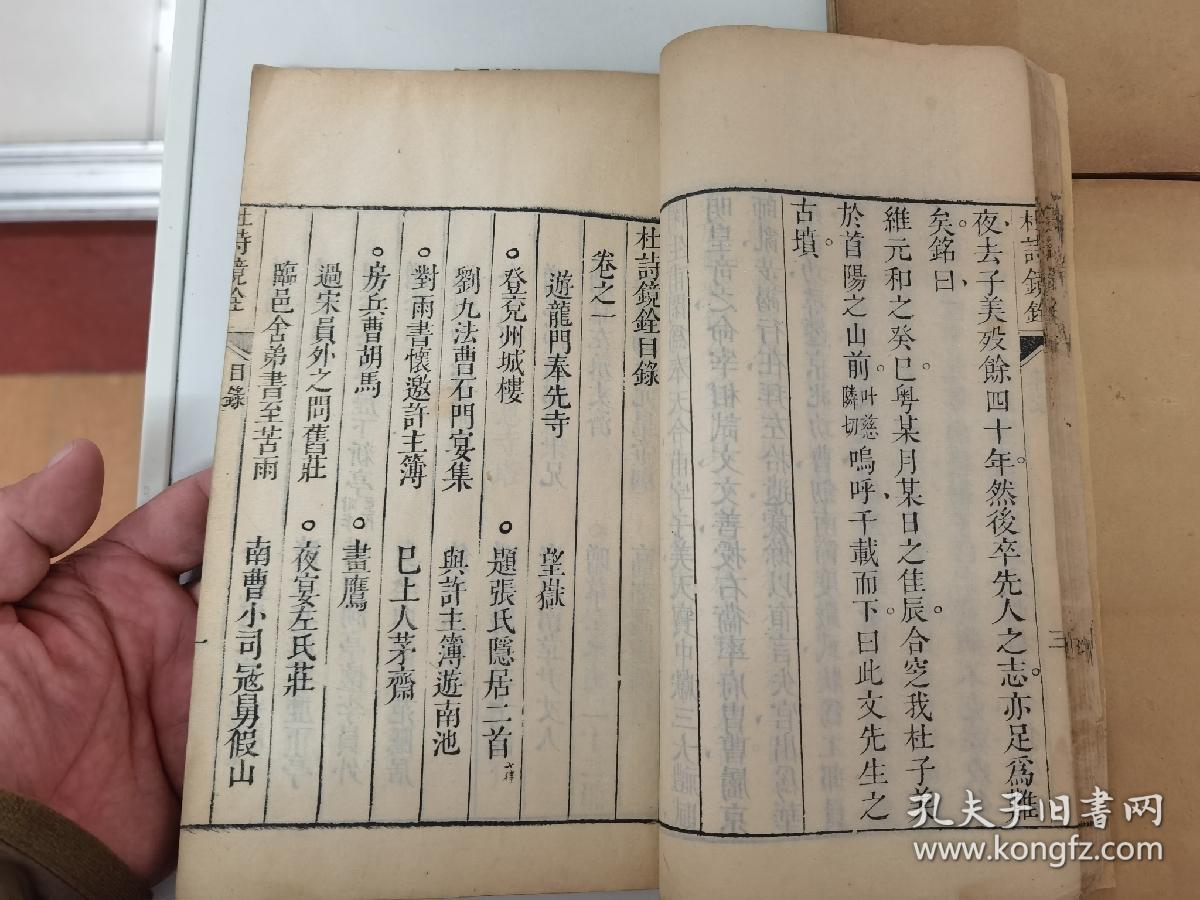 杜詩鏡銓
三
夜去子美歿餘四十年然後卒先人之志亦足爲難
矣銘曰
維元和之癸巳粵某月某日之佳辰合窆我杜子美
於首陽之山前叶慈隣切嗚呼千載而下曰此文先生之
古墳
杜詩鏡銓目錄
卷之一
遊龍門奉先寺 望嶽
登兗州城樓 題張氏隱居二首
劉九法曹石門宴集 與許主簿遊南池
對雨書懷邀許主簿 巳上人茅齋
房兵曹胡馬 畫鷹
過宋員外之問舊莊 夜宴左氏莊
臨邑舍弟書至苦雨 南曹小司寇舅假山
杜詩鏡銓 目錄 一
孔夫子旧書网
www.kongfz.com